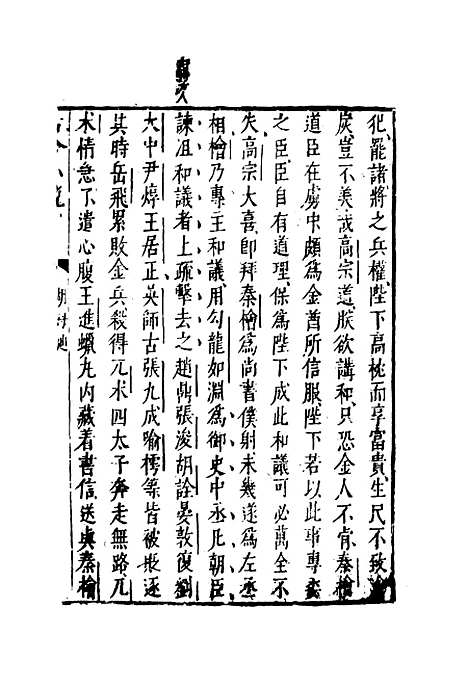 犯罷諸將之兵權陛下高枕而享富貴生民不致塗
炭豈不美哉高宗道朕欲講和只恐金人不肯秦檜
道臣在虜中頗為金酋所信服陛下若以此事專委
之臣臣自有道理保為陛下成此和議可必萬全不
失高宗大喜即拜秦檜為尚書僕射未幾遂為左丞
相檜乃專主和議用勾龍如淵為御史中丞凡朝臣
諫沮和議者上疏擊去之趙鼎張浚胡詮晏敦復劉
大中尹焞王居正英師古張九成喻樗等皆被貶逐
其時岳飛累敗金兵殺得兀朮四太子奔走無路兀
朮情急了遣心腹王進蠟丸內藏着書信送與秦檜
古今小說